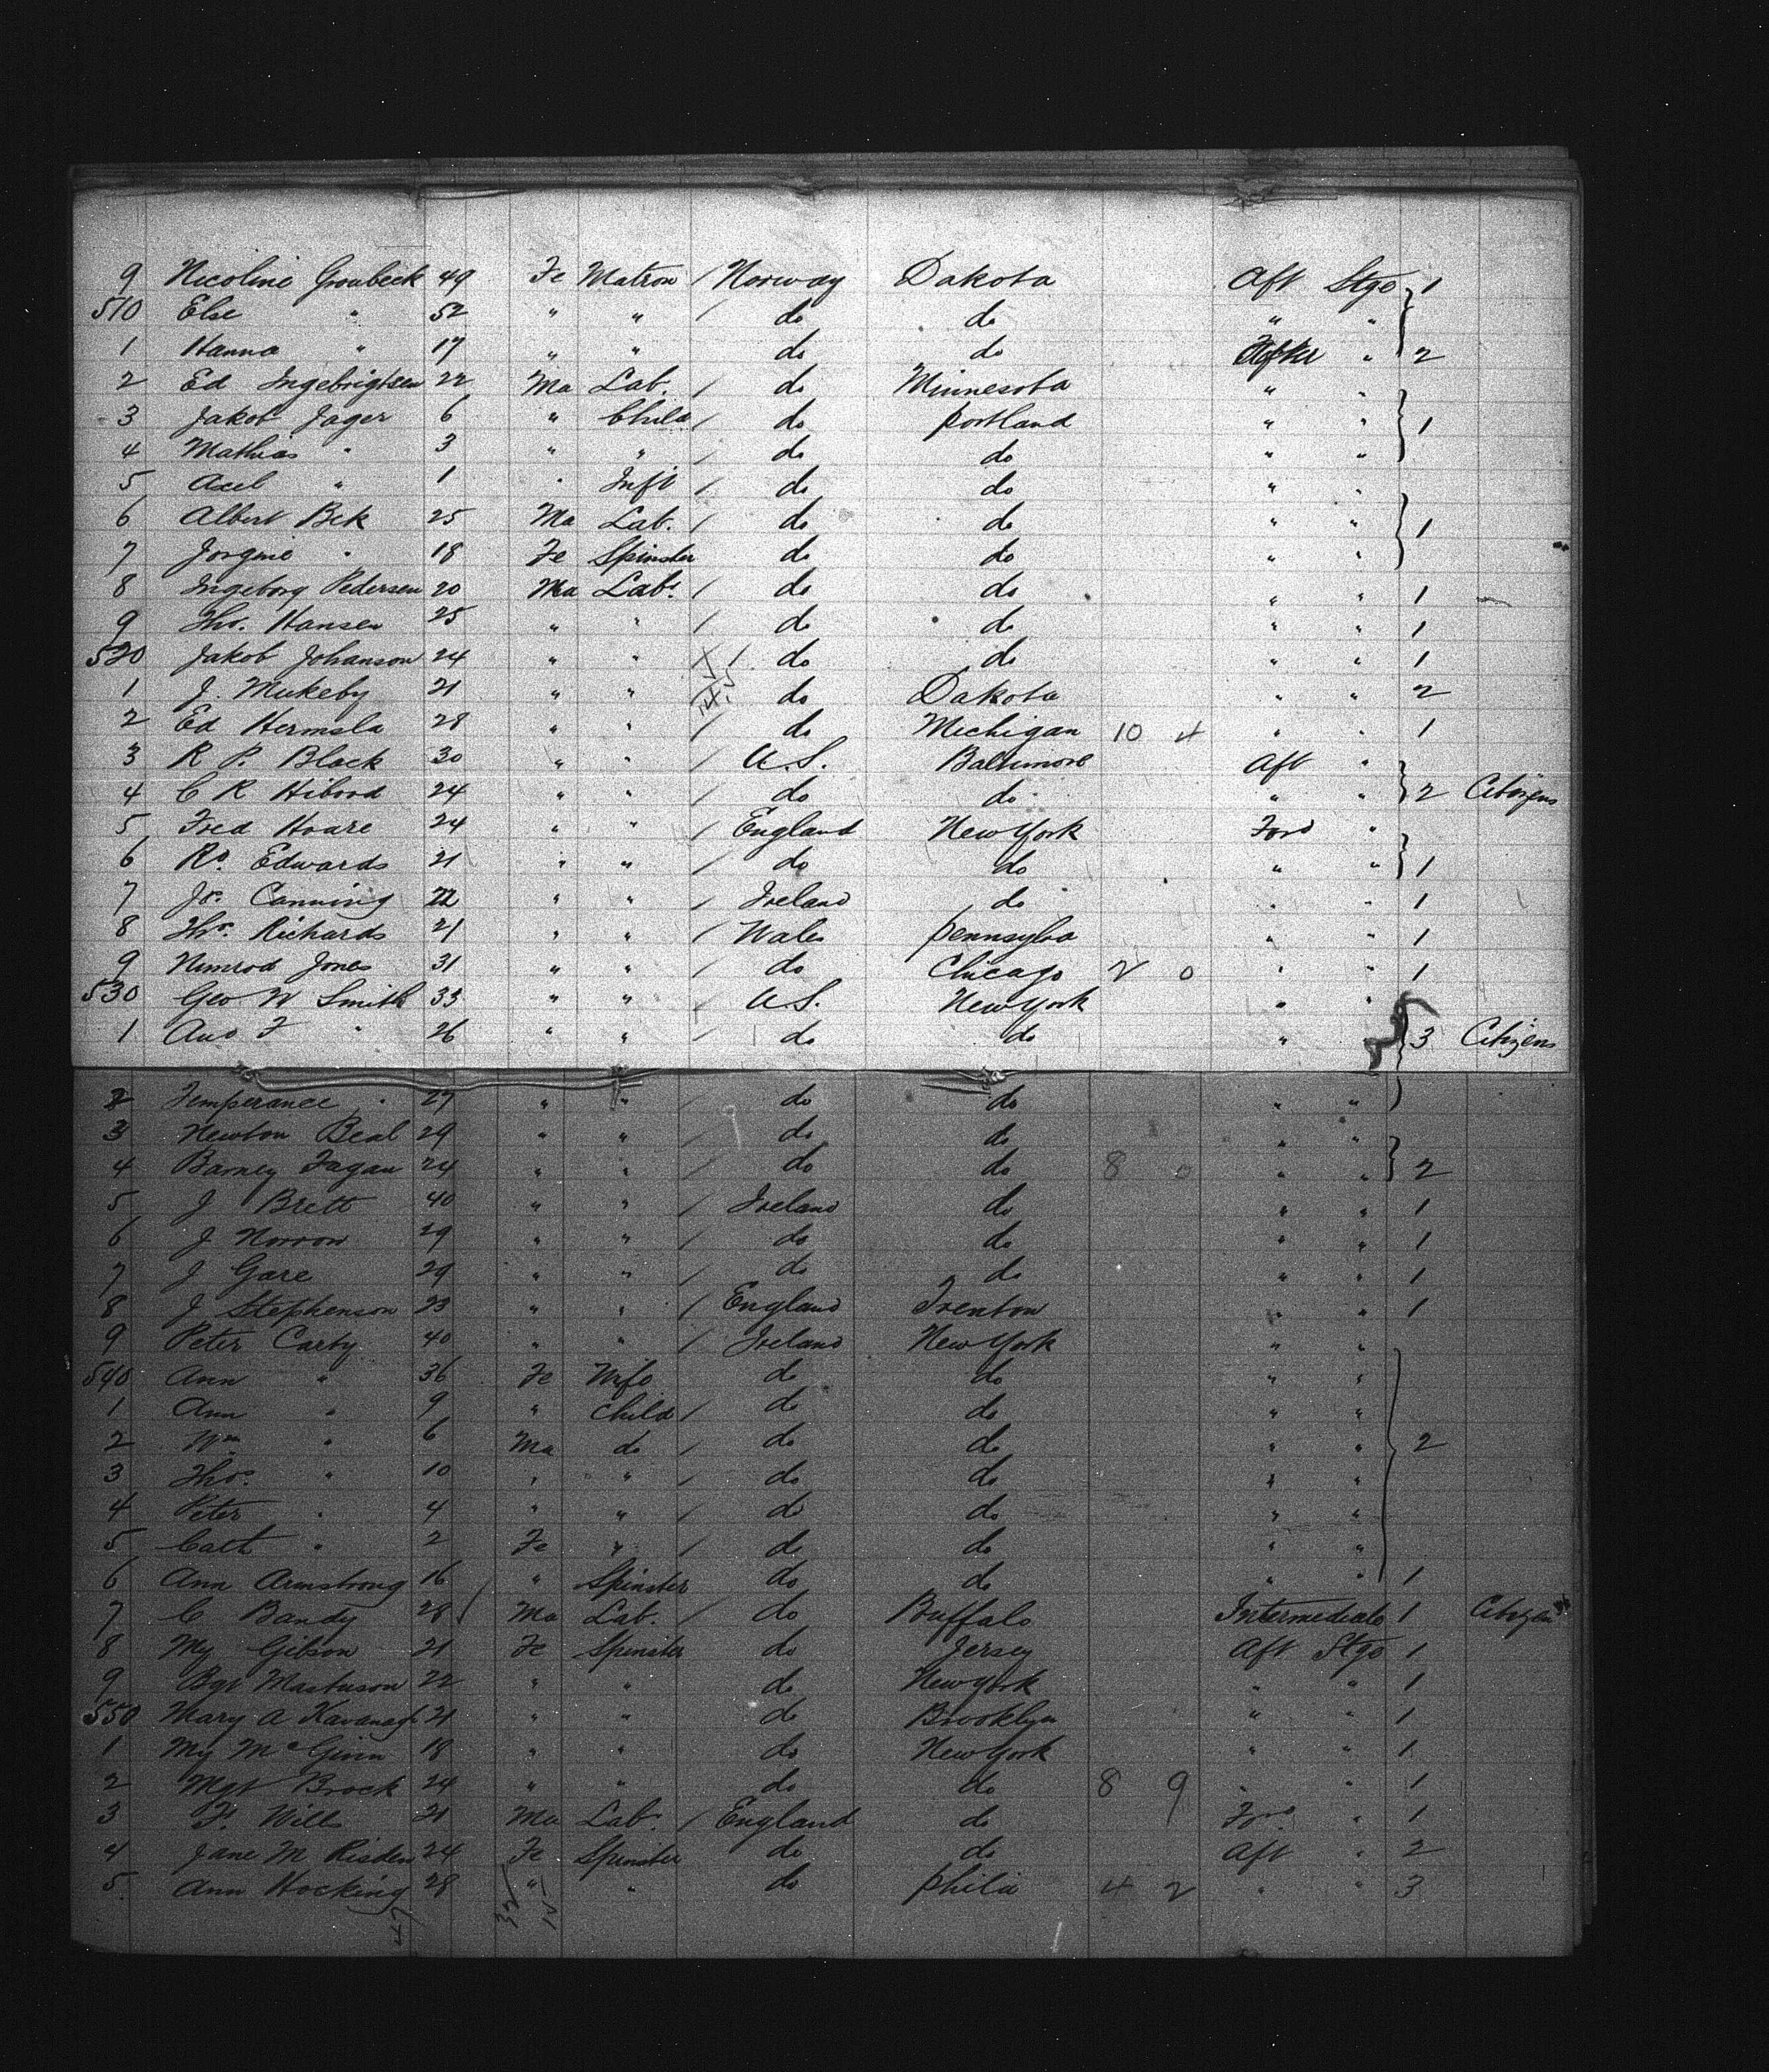 9 Nicoline Gronbeck 49 Fe Matron / Norway Dakota Aft Stge 1
510 Else " 52 " " do do " "
1 Hanna " 17 " " do do After " 2
2 Ed Ingebrigtsen 22 Ma Lab. / do Minnesota " "
3 Jakob Jager 6 " Child / do Portland " " 1
4 Mathias " 3 " " / do do " "
5 Axel " 1 " Inft / do do " "
6 Albert Bek 25 Ma Lab. / do do " " 1
7 Jorgine " 18 Fe Spinster do do " "
8 Ingeborg Pedersen 20 Ma Lab. / do do " " 1
9 Tho. Hansen 25 " " / do do " " 1
520 Jakob Johanson 24 " " / do do " " 1
1 J. Mukeby 21 " " do Dakota " " 2
2 Ed Hermsla 28 " " / do Michigan 10 4 " " 1
3 R P. Black 30 " " / U.S. Baltimore Aft "
4 C R Hibord 24 " " / do do " " 2 Citizens
5 Fred Hoare 24 " " / England New York Ford "
6 Rd. Edwards 21 " " / do do " " 1
7 Js. Canning 22 " " / Ireland do " " 1
8 Thos. Richards 21 " " / Wales Pennsylva " " 1
9 Nimrod Jones 31 " " / do Chicago 2 0 " " 1
530 Geo W Smith 33 " " / U.S. New York " "
1 And F " 26 " " / do do " 3 Citizens
2 Temperance " 27 " " / do do " "
3 Newton Beal 29 " " / do do " "
4 Barney Fagan 24 " " / do do 8 0 " " 2
5 J Brett 40 " " / Ireland do " " 1
6 J Norron 29 " " / do do " " 1
7 J Gare 29 " " / do do " " 1
8 J Stephenson 23 " " / England Trenton " " 1
9 Peter Carby 40 " " / Ireland New York " "
540 Ann " 36 Fe Wife do do " "
1 Ann " 9 " Child / do do " "
2 Wm " 6 Ma do / do do " " 2
3 Thos. " 10 " " / do do " "
4 Peter " 4 " " / do do " "
5 Cath " 2 Fe " / do do " "
6 Ann Armstrong 16 " Spinster do do " " 1
7 C Bandy 28 Ma Lab. / do Buffalo Intermediate 1 Citizen
8 My Gibson 21 Fe Spinster do Jersey Aft Stge 1
9 Bgt Mastuson 22 " " do New York " " 1
550 Mary A Kavanagh 21 " " do Brooklyn " " 1
1 My McGinn 18 " " do New York " " 1
2 Mgt Brock 24 " " do do 8 9 " " 1
3 F. Wills 21 Ma Lab. / England do Ford " 1
4 Jane M Risden 24 Fe Spinster do do Aft " 2
5 Ann Hocking 28 " " do Phila 4 2 " " 3
47 32 15